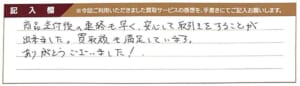 記入欄 ※今回ご利用いただきました買取サービスの感想を、手書きにてご記入お願いします。
商品送付後の連絡も早く、安心して取引をすることが
出来ました。買取額も満足しています。
ありがとうございました!